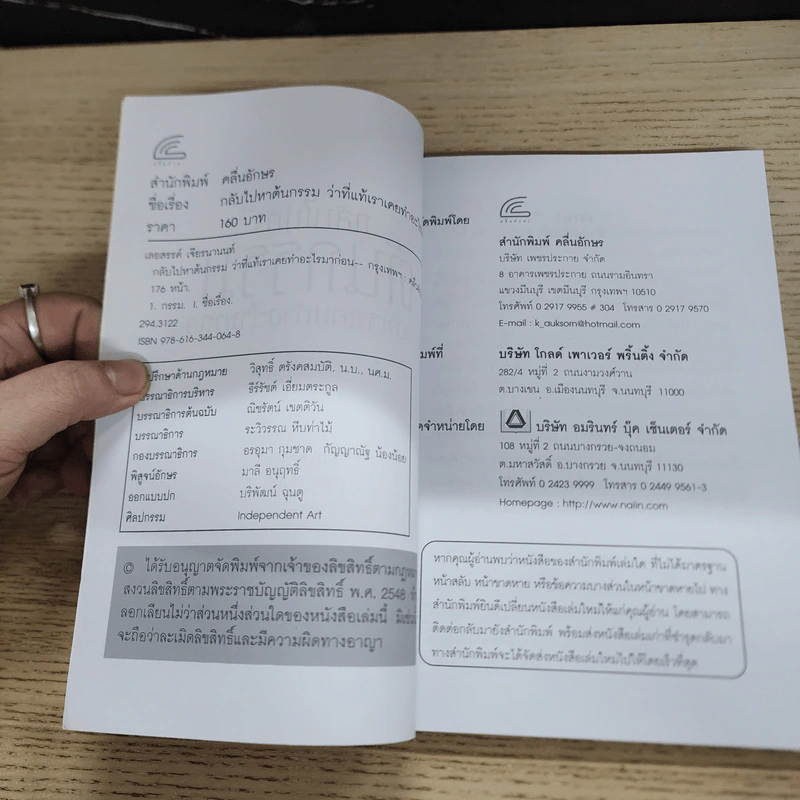 คลื่นอักษร
สำนักพิมพ์ คลื่นอักษร
ชื่อเรื่อง กลับไปหาต้นกรรม ว่าที่แท้เราเคยทำอะไร
ราคา 160 บาท
เลอสรรค์ เจียรนานนท์
กลับไปหาต้นกรรม ว่าที่แท้เราเคยทำอะไรมาก่อน-- กรุงเทพฯ :
176 หน้า.
1. กรรม. I. ชื่อเรื่อง.
294.3122
ISBN 978-616-344-064-8
ปรึกษาด้านกฎหมาย วิสุทธิ์ ตรังคสมบัติ, น.บ., นศ.ม.
บรรณาธิการบริหาร ธีร์รัชต์ เอี่ยมตระกูล
บรรณาธิการต้นฉบับ ณิชรัตน์ เขตติวัน
บรรณาธิการ ระวิวรรณ หีบท่าไม้
กองบรรณาธิการ อรอุมา กุมชาด กัญญาณัฐ น้องน้อย
พิสูจน์อักษร มาลี อนุฤทธิ์
ออกแบบปก บริพัฒน์ ฉุนตู
ศิลปกรรม Independent Art
© ได้รับอนุญาตจัดพิมพ์จากเจ้าของลิขสิทธิ์ตามกฎหมาย
สงวนลิขสิทธิ์ตามพระราชบัญญัติลิขสิทธิ์ พ.ศ. 2548
ลอกเลียนไม่ว่าส่วนหนึ่งส่วนใดของหนังสือเล่มนี้
จะถือว่าละเมิดลิขสิทธิ์และมีความผิดทางอาญา
คลื่นอักษร
จัดพิมพ์โดย
สำนักพิมพ์ คลื่นอักษร
บริษัท เพชรประกาย จำกัด
8 อาคารเพชรประกาย ถนนรามอินทรา
แขวงมีนบุรี เขตมีนบุรี กรุงเทพฯ 10510
โทรศัพท์ 0 2917 9955 # 304 โทรสาร 0 2917 9570
E-mail : k_auksorn@hotmail.com
พิมพ์ที่
บริษัท โกลด์ เพาเวอร์ พริ้นติ้ง จำกัด
282/4 หมู่ที่ 2 ถนนงามวงศ์วาน
ต.บางเขน อ.เมืองนนทบุรี จ.นนทบุรี 11000
จัดจำหน่ายโดย
บริษัท อมรินทร์ บุ๊ค เซ็นเตอร์ จำกัด
108 หมู่ที่ 2 ถนนบางกรวย-จงถนอม
ต.มหาสวัสดิ์ อ.บางกรวย จ.นนทบุรี 11130
โทรศัพท์ 0 2423 9999 โทรสาร 0 2449 9561-3
Homepage : http://www.naiin.com
หากคุณผู้อ่านพบว่าหนังสือของสำนักพิมพ์เล่มใด ที่ไม่ได้มาตรฐาน
หน้าสลับ หน้าขาดหาย หรือข้อความบางส่วนในหน้าขาดหายไป ทาง
สำนักพิมพ์ยินดีเปลี่ยนหนังสือเล่มใหม่ให้แก่คุณผู้อ่าน โดยสามารถ
ติดต่อกลับมายังสำนักพิมพ์ พร้อมส่งหนังสือเล่มเก่าที่ชำรุดกลับมา
ทางสำนักพิมพ์จะได้จัดส่งหนังสือเล่มใหม่ไปให้โดยเร็วที่สุด